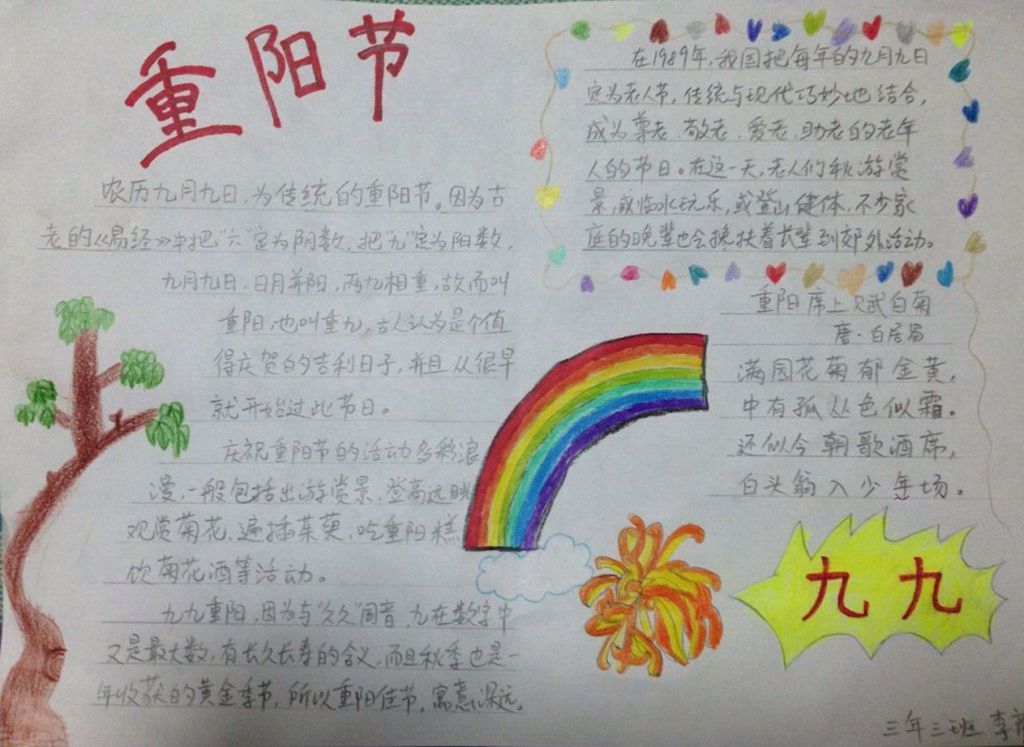 重阳节
农历九月九日,为传统的重阳节。因为古
老的《易经》中把“六”定为阴数,把“九”定为阳数,
九月九日,日月并阳,两九相重,故而叫
重阳,也叫重九,古人认为是个值
得庆贺的吉利日子,并且从很早
就开始过此节日。
庆祝重阳节的活动多彩浪
漫,一般包括出游赏景,登高远眺
观赏菊花,遍插茱萸,吃重阳糕
饮菊花酒等活动。
九九重阳,因为与“久久”同音,九在数字中
又是最大数,有长久长寿的含义,而且秋季也是一
年收获的黄金季节,所以重阳佳节,寓意深远。
在1989年,我国把每年的九月九日
定为老人节,传统与现代巧妙地结合,
成为尊老、敬老、爱老、助老的老年
人的节日。在这一天,老人们秋游赏
景,或临水玩乐,或登山健体,不少家
庭的晚辈也会搀扶着长辈到郊外活动。
重阳席上欠武白菊
唐·白居易
满园花菊郁金黄,
中有孤丛色似霜。
还似今朝歌酒席,
白头翁入少年场。
九九
三年三班 李